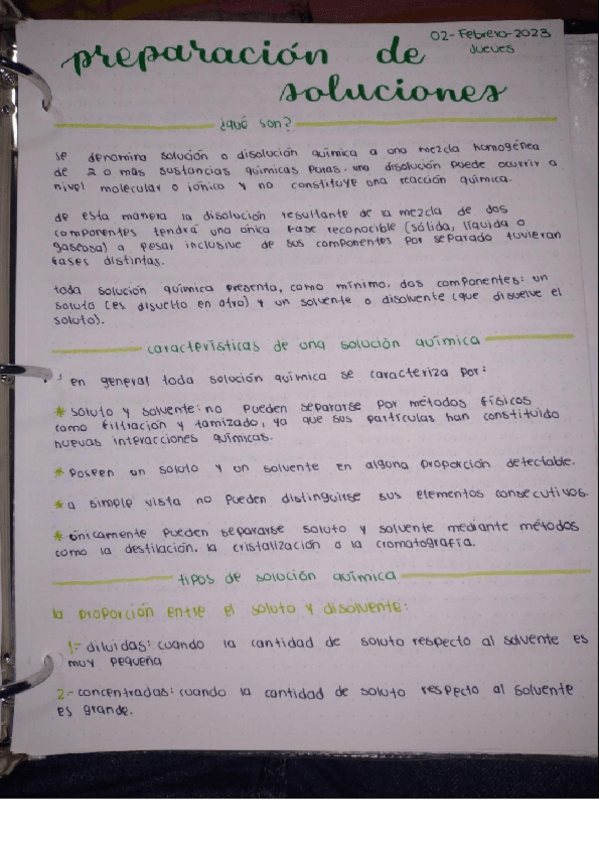 02-Febrero-2023
Jueves
preparación de
soluciones
¿qué son?
se denomina solución o disolución química a una mezcla homogénea
de 2 o más sustancias químicas puras. una disolución puede ocurrir a
nivel molecular o iónico y no constituye una reacción química.
de esta manera la disolución resultante de la mezcla de dos
componentes tendrá una única fase reconocible (sólida, líquida o
gaseosa) a pesar inclusive de sus componentes por separado tuvieran
fases distintas.
toda solución química presenta, como mínimo, dos componentes: un
soluto (es disuelto en otro) y un solvente o disolvente (que disuelve el
soluto).
características de una solución química
en general toda solución química se caracteriza por:
* soluto y solvente: no pueden separarse por métodos físicos
como filtración y tamizado, ya que sus partículas han constituido
nuevas interacciones químicas.
* poseen un soluto y un solvente en alguna proporción detectable.
* a simple vista no pueden distinguirse sus elementos consecutivos.
* únicamente pueden separarse soluto y solvente mediante métodos
como la destilación, la cristalización o la cromatografía.
tipos de solución química
la proporción entre el soluto y disolvente:
1.- diluidas: cuando la cantidad de soluto respecto al solvente es
muy pequeña
2.- concentradas: cuando la cantidad de soluto respecto al solvente
es grande.